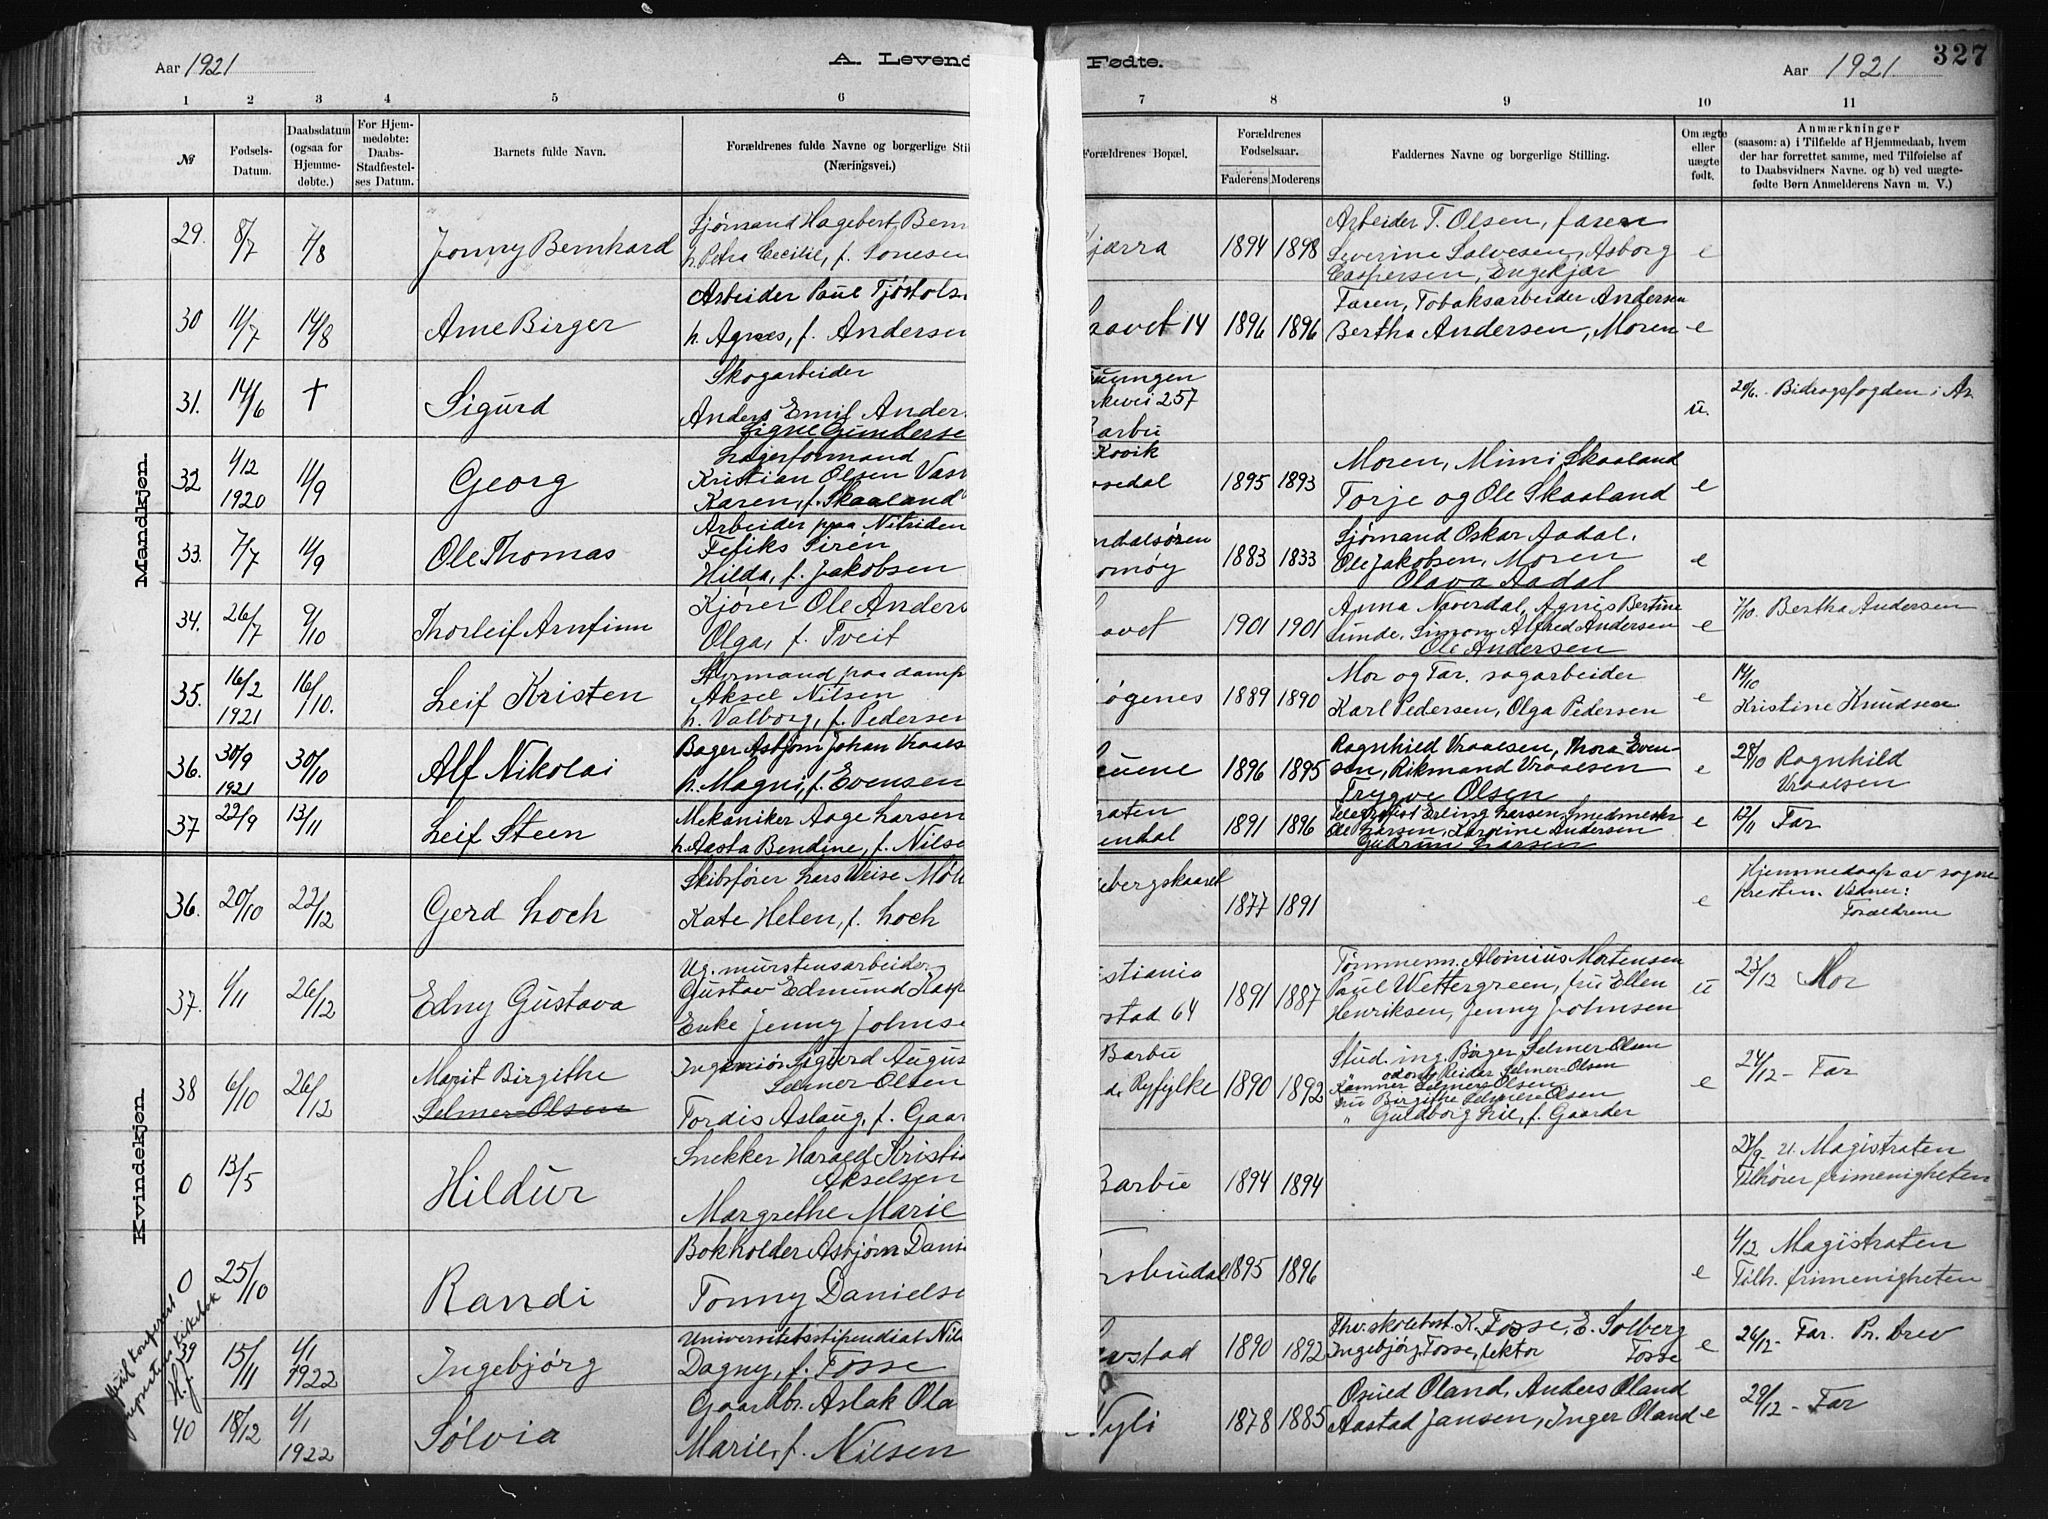 Aar 1921
A. Levend Fødte.
Aar 1921
327
1 2 3 4 5 6 7 8 9 10 11
№
Fødsels-Datum.
Daabsdatum (ogsaa for Hjemme-døbte.)
For Hjem-medøbte: Daabs-Stadfæstel-ses Datum.
Barnets fulde Navn.
Forældrenes fulde Navne og borgerlige Stil
(Næringsvei.)
Forældrenes Bopæl.
Forældrenes Fødselsaar.
Faderens Moderens
Faddernes Navne og borgerlige Stilling.
Om ægte eller uægte født.
Anmærkninger
(saasom: a) i Tilfælde af Hjemmedaab, hvem
der har forrettet samme, med Tilføielse af
to Daabsvidners Navne. og b) ved uægte-
fødte Børn Anmelderens Navn m. V.)
Mandkjøn.
29. 8/7 7/8 Jonny Bernhard
Sjømand Hagebert Bern
h. Petra Cecilie, f. Tønesen
jærra 1894 1898
Arbeider T. Olsen, faren
Severine Salvesen, Asborg
Caspersen, Engekjær
e
30 11/7 14/8 Arne Birger
Arbeider Paul Tjøstols
h. Agnes, f. Andersen
aavet 14 1896 1896
Faren, Tobaksarbeider Andersen
Bertha Andersen, Moren
e
31. 14/6 † Sigurd
Skogarbeider
Anders Emil Ander
Signe Gunderse
uungen
rkevei 257
Barbu
u.
20/6. Bidragsfogden i Ar
32 4/12 1920 11/9 Georg
Lagerformand
Kristian Olsen Vasr
Karen, f. Skaaland
Kovik
osedal 1895 1893
Moren, Mimi Skaaland
Torje og Ole Skaaland
e
33. 7/7 11/9 Ole Thomas
Arbeider paa Nitriden
Fefiks Sirén
Hilda, f. Jakobsen
ndalsøren
omøy 1883 1833
Sjømand Oskar Aadal.
Ole Jakobsen, Moren
Olava Aadal
e
34. 26/7 9/10 Thorleif Arnfinn
Kjører Ole Anders
Olga, f. Tveit
avet 1901 1901
Anna Naverdal, Agnes Bertine
Sunde, Simon Alfred Andersen
Ole Andersen
e
7/10. Bertha Andersen
35. 16/2 1921 16/10. Leif Kristen
Styrmand paa damp
Aksel Nilsen
h. Valborg, f. Pedersen
øgenes 1889 1890
Mor og Far. sagarbeider
Karl Pedersen, Olga Pedersen
e
14/10
Kristine Knudsen
36. 30/9 1921 30/10 Alf Nikolai
Bager Asbjørn Johan Vraals
h. Magni, f. Evensen
euene 1896 1895
Ragnhild Vraalsen, Thora Even-
sen, Rikmand Vraalsen
Trygve Olsen
e
28/10 Ragnhild
Vraalsen
37 22/9 13/11 Leif Steen
Mekaniker Aage Larsen
h. Aasta Bendine, f. Nilse
raten
endal 1891 1896
Erling Larsen, smedmester
Ole Larsen, Karoline Andersen
Gudrun Larsen
e
12/11 Far
Kvindekjøn.
36. 20/10 22/12 Gerd Loch
Skibsfører Lars Weise Møll
Kate Helen, f. Loch
ebergskaaret 1877 1891
e
Hjemmedaap av sogne
presten. Vidner:
Forældrene
37. 4/11 26/12 Edny Gustava
Ug. murstensarbeider
Gustav Edmund Kasp
Enke Jenny Johnse
istiania
stad 64 1891 1887
Tømmerm. Aloinius Mortensen
Paul Wettergreen, fru Ellen
Henriksen, Jenny Johnsen
u
23/12 Mor
38 6/10 26/12 Marit Birgithe
Selmer-Olsen
Ingeniør Sigurd Augus
Selmer-Olsen
Tordis Aslaug, f. Gaar
Barbu
d. Ryfylke 1890 1892
Stud. ing. Birger Selmer-Olsen
odont. Reidar Selmer-Olsen
Kæmner Selmer Olsen,
fru Birgithe Selmer Olsen
" Guldborg Lie, f. Gaarder
e
24/12 - Far
0 13/5 Hildur
Snekker Harald Kristia
Akselsen
Margrethe Marie
Barbu 1894 1894
27/9 u. Magistraten
Tilhører frimenigheten
0 25/10 Randi
Bokholder Asbjørn Danie
Tonny Danielse
rsbudal 1895 1896
e
4/12 Magistraten
Tilh. frimenigheten
39 15/11 4/1 1922 Ingebjørg
Universitetsstipendiat Nils
Dagny, f. Fosse
vstad 1890 1892
Fhv. skolebest. K. Fosse, E. Solberg
Ingebjørg Fosse, lektor Fosse
e
26/12 - Far. Pr. brev
40 18/12 4/1 1922 Sølvia
Gaardbr. Aslak Ola
Marie, f. Nilsen
Nyli 1878 1885
Osuld Oland, Anders Oland
Aastad Jansen, Inger Oland
e
29/12 - Far